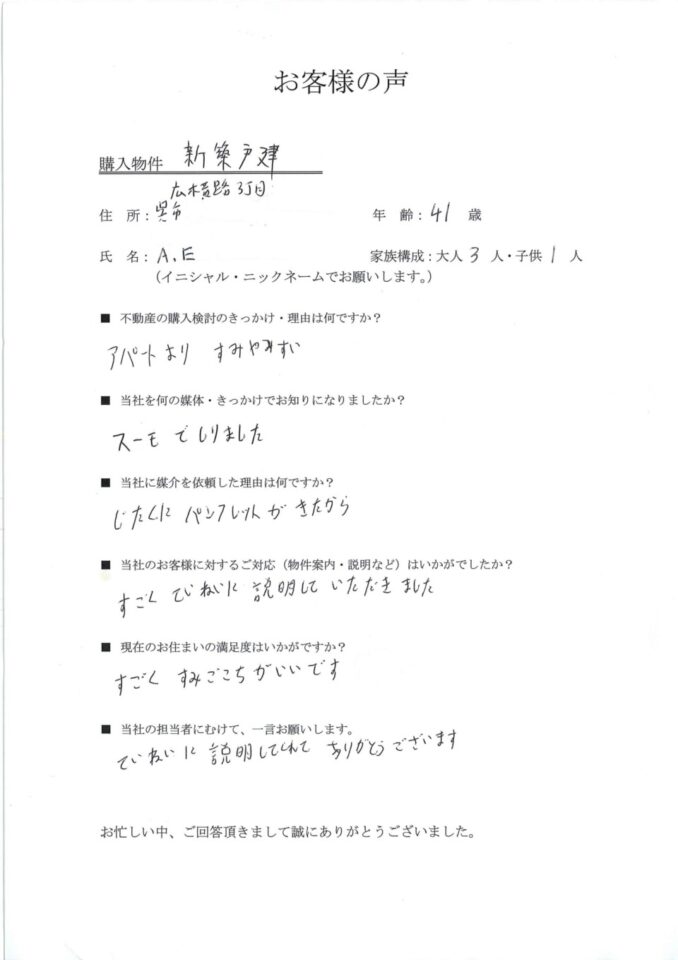 お客様の声
購入物件 新築戸建
広横路3丁目
住 所：呉市 年 齢：41 歳
氏 名：A.E 家族構成：大人 3 人・子供 1 人
（イニシャル・ニックネームでお願いします。）
■ 不動産の購入検討のきっかけ・理由は何ですか？
アパートより すみやすい
■ 当社を何の媒体・きっかけでお知りになりましたか？
スーモでしりました
■ 当社に媒介を依頼した理由は何ですか？
じたくに パンフレットが きたから
■ 当社のお客様に対するご対応（物件案内・説明など）はいかがでしたか？
すごく ていねいに 説明して いただきました
■ 現在のお住まいの満足度はいかがですか？
すごく すみごこちがいいです
■ 当社の担当者にむけて、一言お願いします。
ていねいに 説明してくれて ありがとうございます
お忙しい中、ご回答頂きまして誠にありがとうございました。